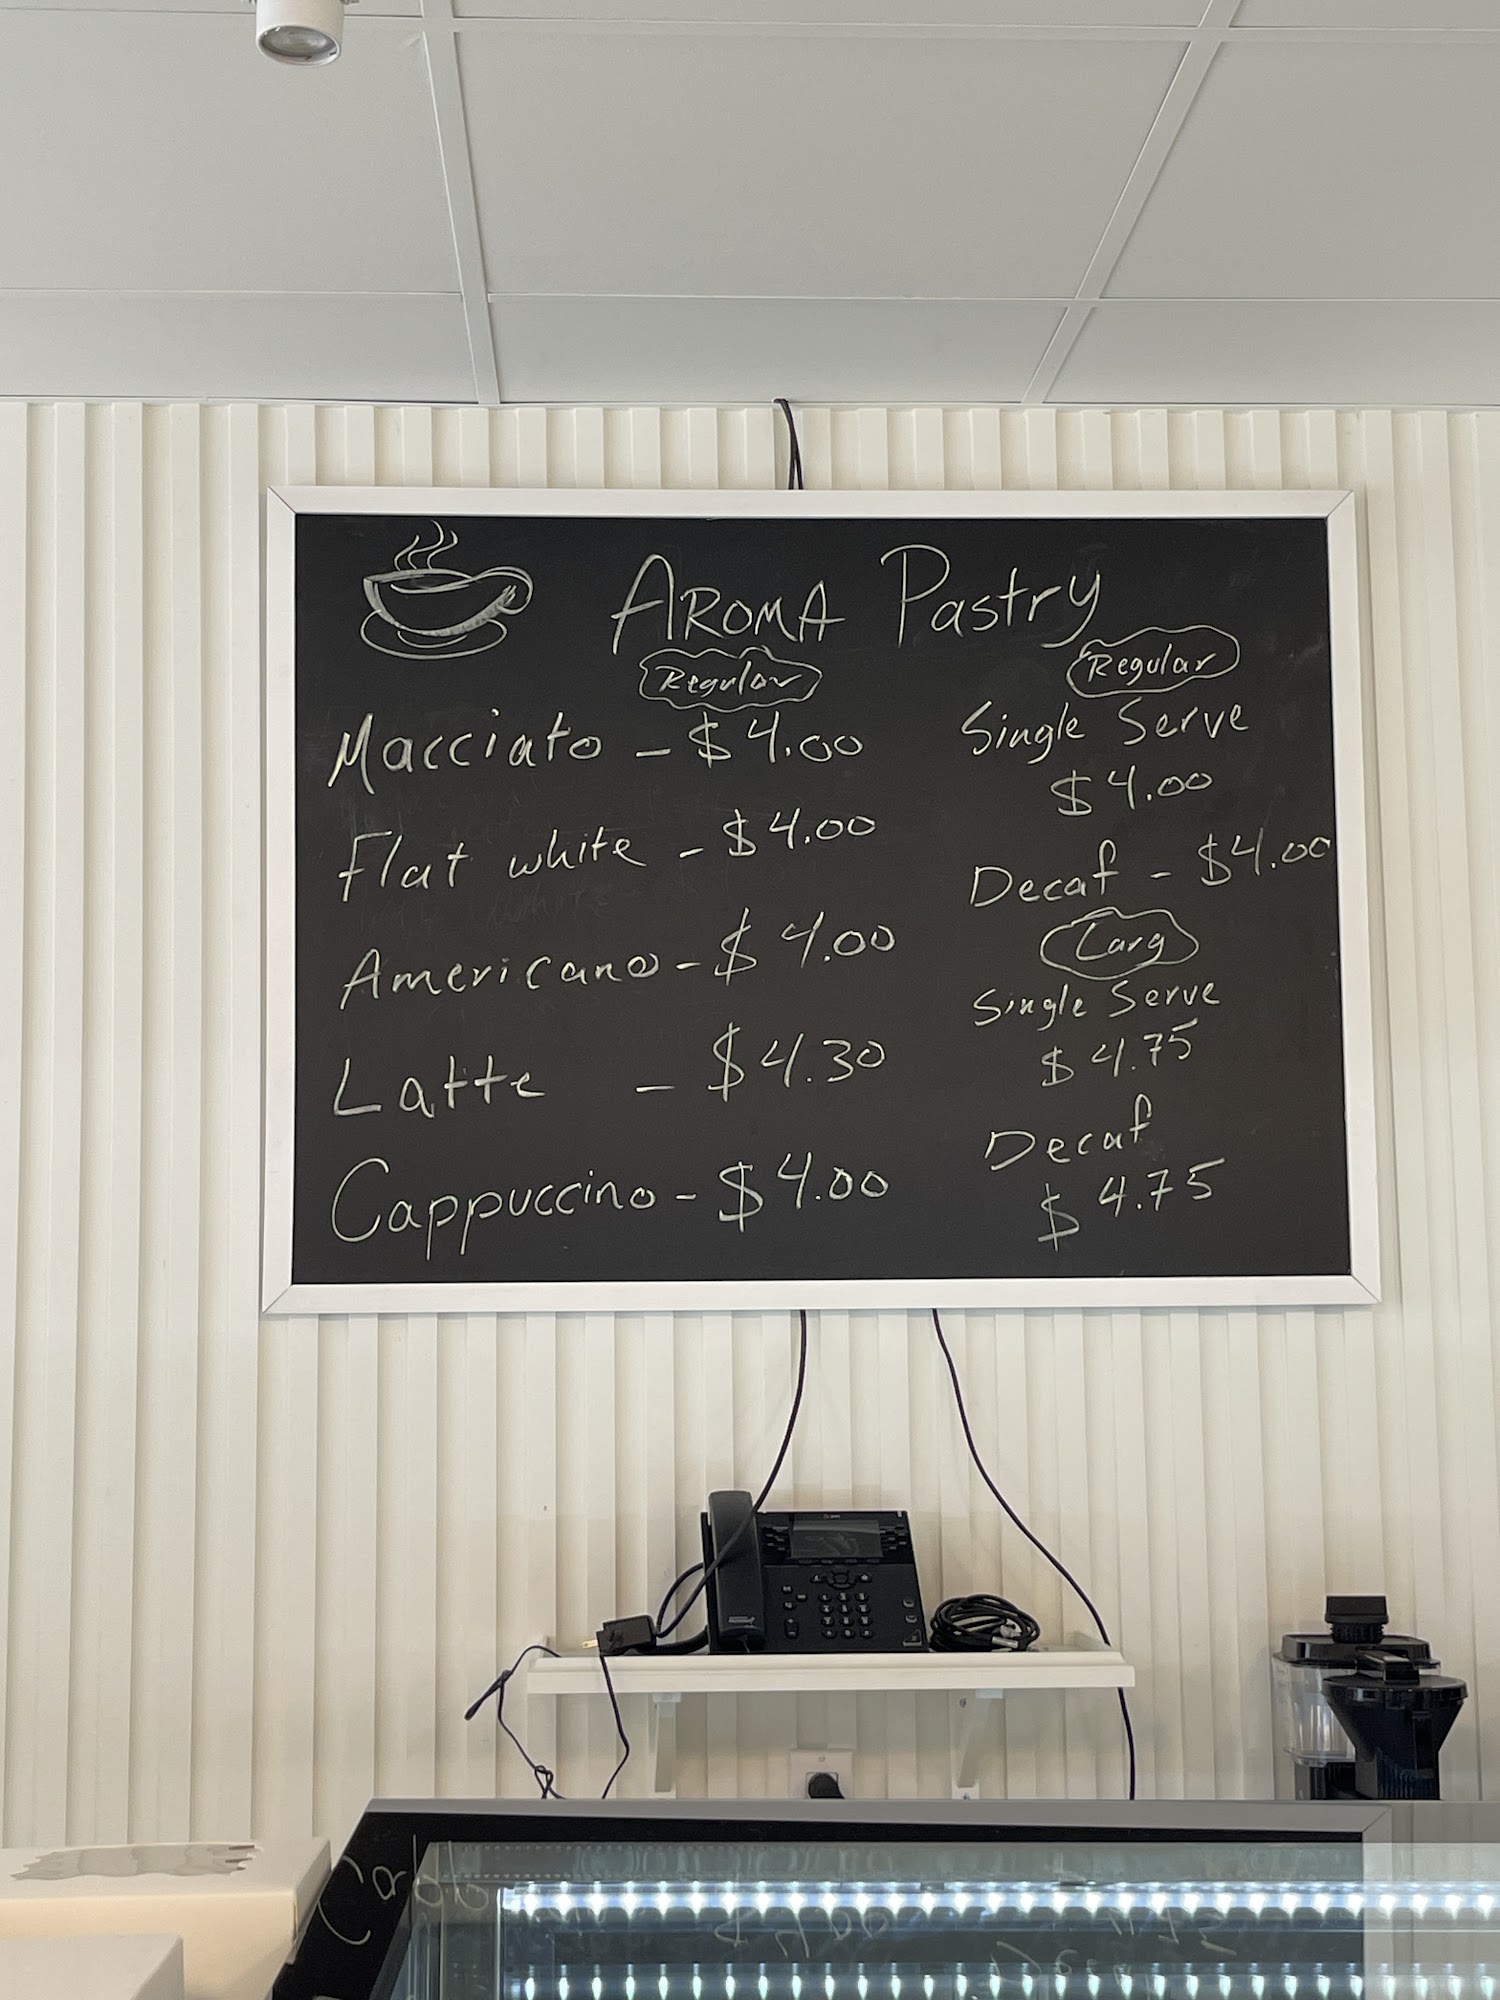 AROMA Pastry
Regular
Macciato - $4.00
Flat white - $4.00
Americano - $4.00
Latte - $4.30
Cappuccino - $4.00
Regular
Single Serve
$4.00
Decaf - $4.00
Larg
Single Serve
$4.75
Decaf
$4.75